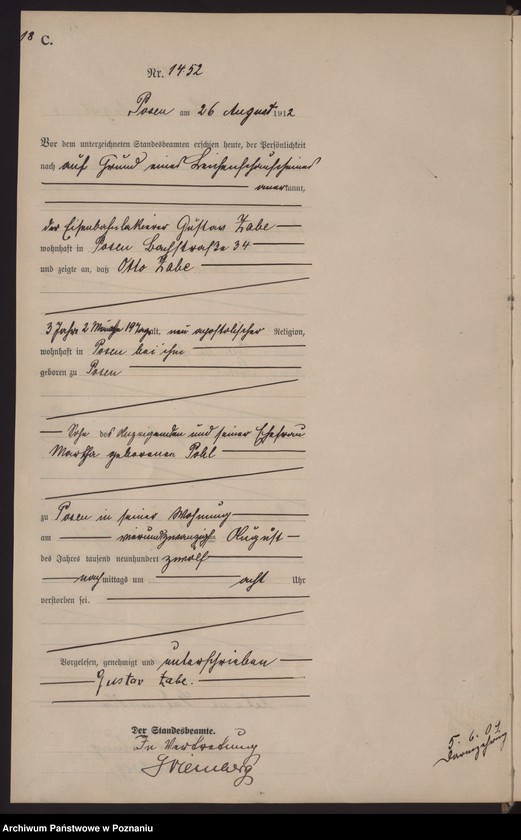 18 C.
Nr. 1452
Posen am 26 August 1912
Vor dem unterzeichneten Standesbeamten erschien heute, der Persönlichkeit
nach auf Grund eines Leichenschauscheines
anerkannt,
der Eisenbahnlakierer Gustav Zabe
wohnhaft in Posen Bachstraße 34
und zeigte an, daß Otto Zabe
3 Jahre 2 Monate 19 Tage alt, neu apostolischer Religion,
wohnhaft in Posen bei ihm
geboren zu Posen
Sohn des Anzeigenden und seiner Ehefrau
Martha geborenen Pohl
zu Posen in seiner Wohnung
am vierundzwanzigsten August
des Jahres tausend neunhundert zwölf
nachmittags um acht Uhr
verstorben sei.
Vorgelesen, genehmigt und unterschrieben
Gustav Zabe.
Der Standesbeamte.
In Vertretung
5. 6. 09
Archiwum Państwowe w Poznaniu